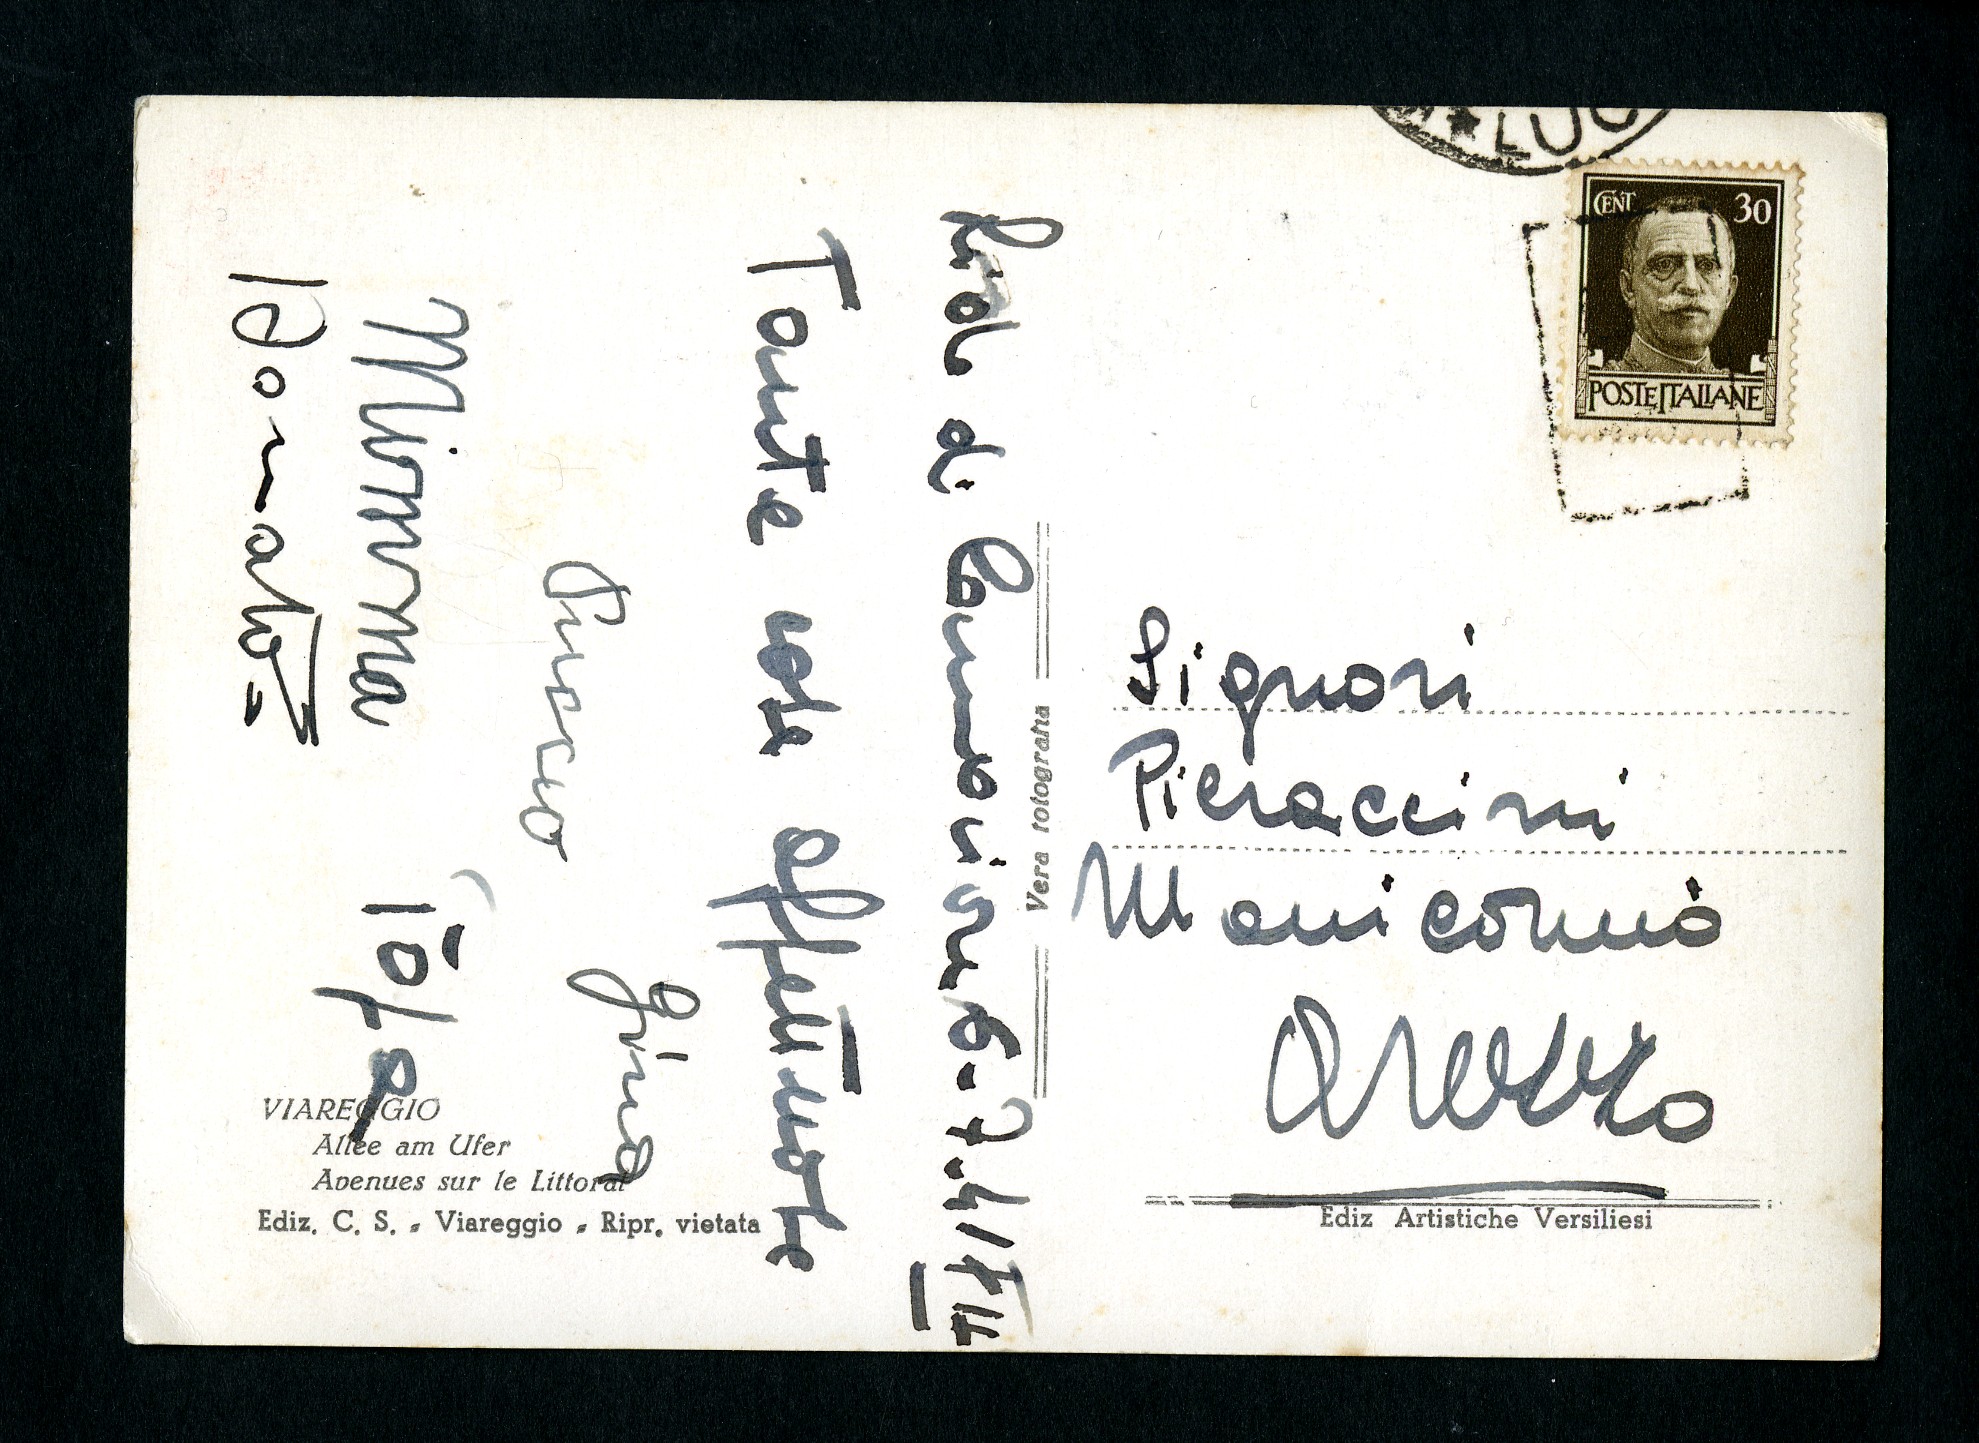 Lido di Camaiore 6-7-41/XIX
Tante cose affettuose
Gina
Mimma
Donato
★ LUC
CENT 30
POSTE ITALIANE
Signori
Pieraccini
Manicomio
Arezzo
Vera fotografia
VIAREGGIO
Allée am Ufer
Avenues sur le Littoral
Ediz. C. S. - Viareggio - Ripr. vietata
Ediz Artistiche Versiliesi